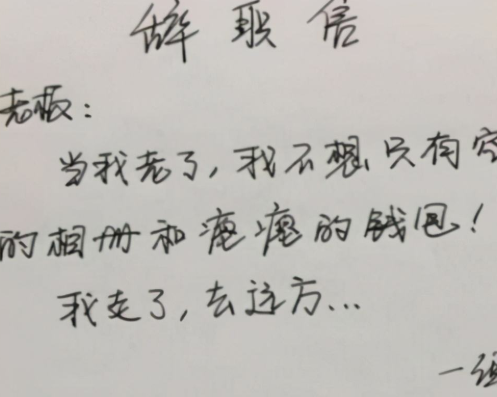 辞职信
老板：
当我老了，我不想只有空
的相册和瘪瘪的钱包！
我走了，去远方...
一